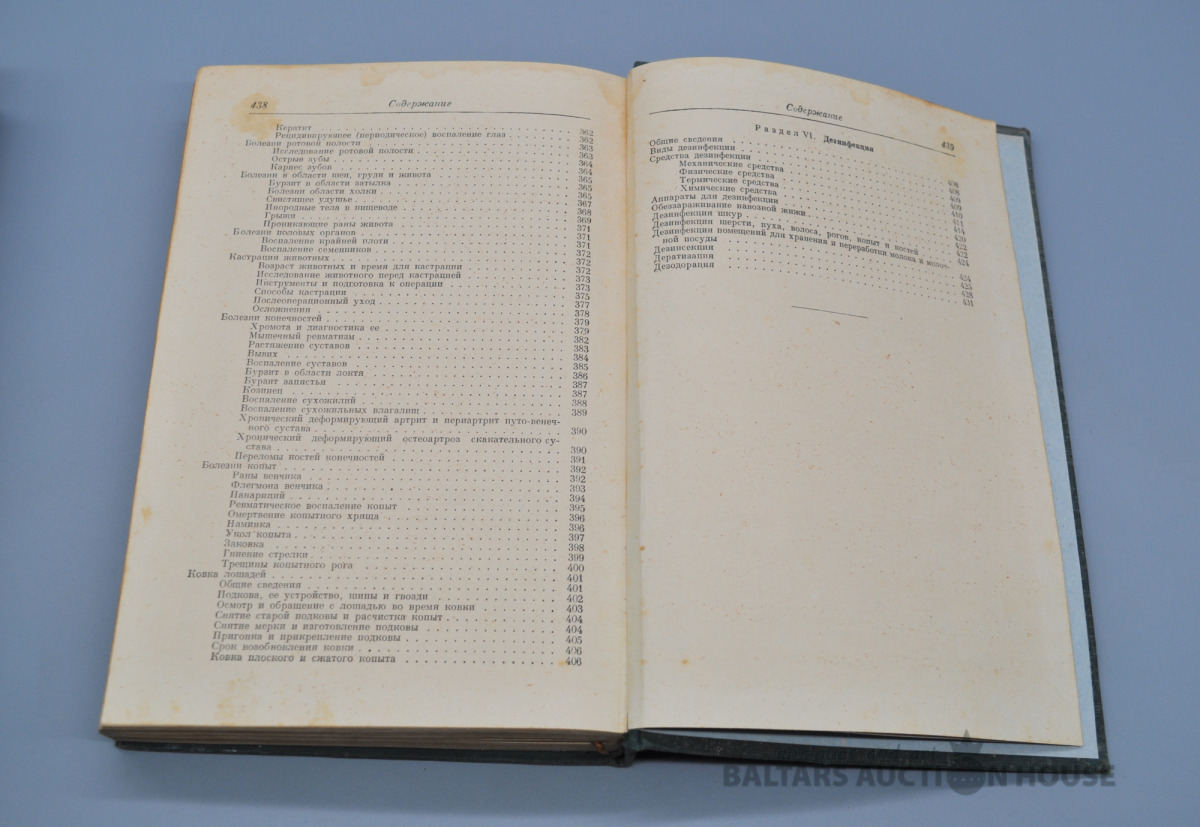 438 Содержание
Кератит 362
Рецидивирующее (периодическое) воспаление глаз 362
Болезни ротовой полости 363
Исследование ротовой полости 363
Острые зубы 364
Кариес зубов 364
Болезни в области шеи, груди и живота 365
Бурзит в области затылка 365
Болезни области холки 365
Свистящее удушье 367
Инородные тела в пищеводе 368
Грыжи 369
Проникающие раны живота 371
Болезни половых органов 371
Воспаление крайней плоти 371
Воспаление семенников 372
Кастрация животных 372
Возраст животных и время для кастрации 372
Исследование животного перед кастрацией 373
Инструменты и подготовка к операции 373
Способы кастрации 375
Послеоперационный уход 377
Осложнения 378
Болезни конечностей 379
Хромота и диагностика ее 379
Мышечный ревматизм 382
Растяжение суставов 383
Вывих 384
Воспаление суставов 385
Бурзит в области локтя 386
Бурзит запястья 387
Козинец 387
Воспаление сухожилий 388
Воспаление сухожильных влагалищ 389
Хронический деформирующий артрит и периартрит путо-венеч-
ного сустава 390
Хронический деформирующий остеоартроз скакательного су-
става 390
Переломы костей конечностей 391
Болезни копыт 392
Раны венчика 392
Флегмона венчика 393
Панариций 394
Ревматическое воспаление копыт 395
Омертвение копытного хряща 396
Наминка 396
Укол копыта 397
Заковка 398
Гниение стрелки 399
Трещины копытного рога 400
Ковка лошадей 401
Общие сведения 401
Подкова, ее устройство, шипы и гвозди 402
Осмотр и обращение с лошадью во время ковки 403
Снятие старой подковы и расчистка копыт 404
Снятие мерки и изготовление подковы 404
Пригонка и прикрепление подковы 405
Срок возобновления ковки 406
Ковка плоского и сжатого копыта 406
Содержание 439
Раздел VI. Дезинфекция
Общие сведения 408
Виды дезинфекции 408
Средства дезинфекции 409
Механические средства 409
Физические средства 410
Термические средства 411
Химические средства 414
Аппараты для дезинфекции 420
Обеззараживание навозной жижи 422
Дезинфекция шкур 422
Дезинфекция шерсти, пуха, волоса, рогов, копыт и костей 424
Дезинфекция помещений для хранения и переработки молока и молоч-
ной посуды 424
Дезинсекция 425
Дератизация 428
Дезодорация 431
BALTARS AUCTION HOUSE